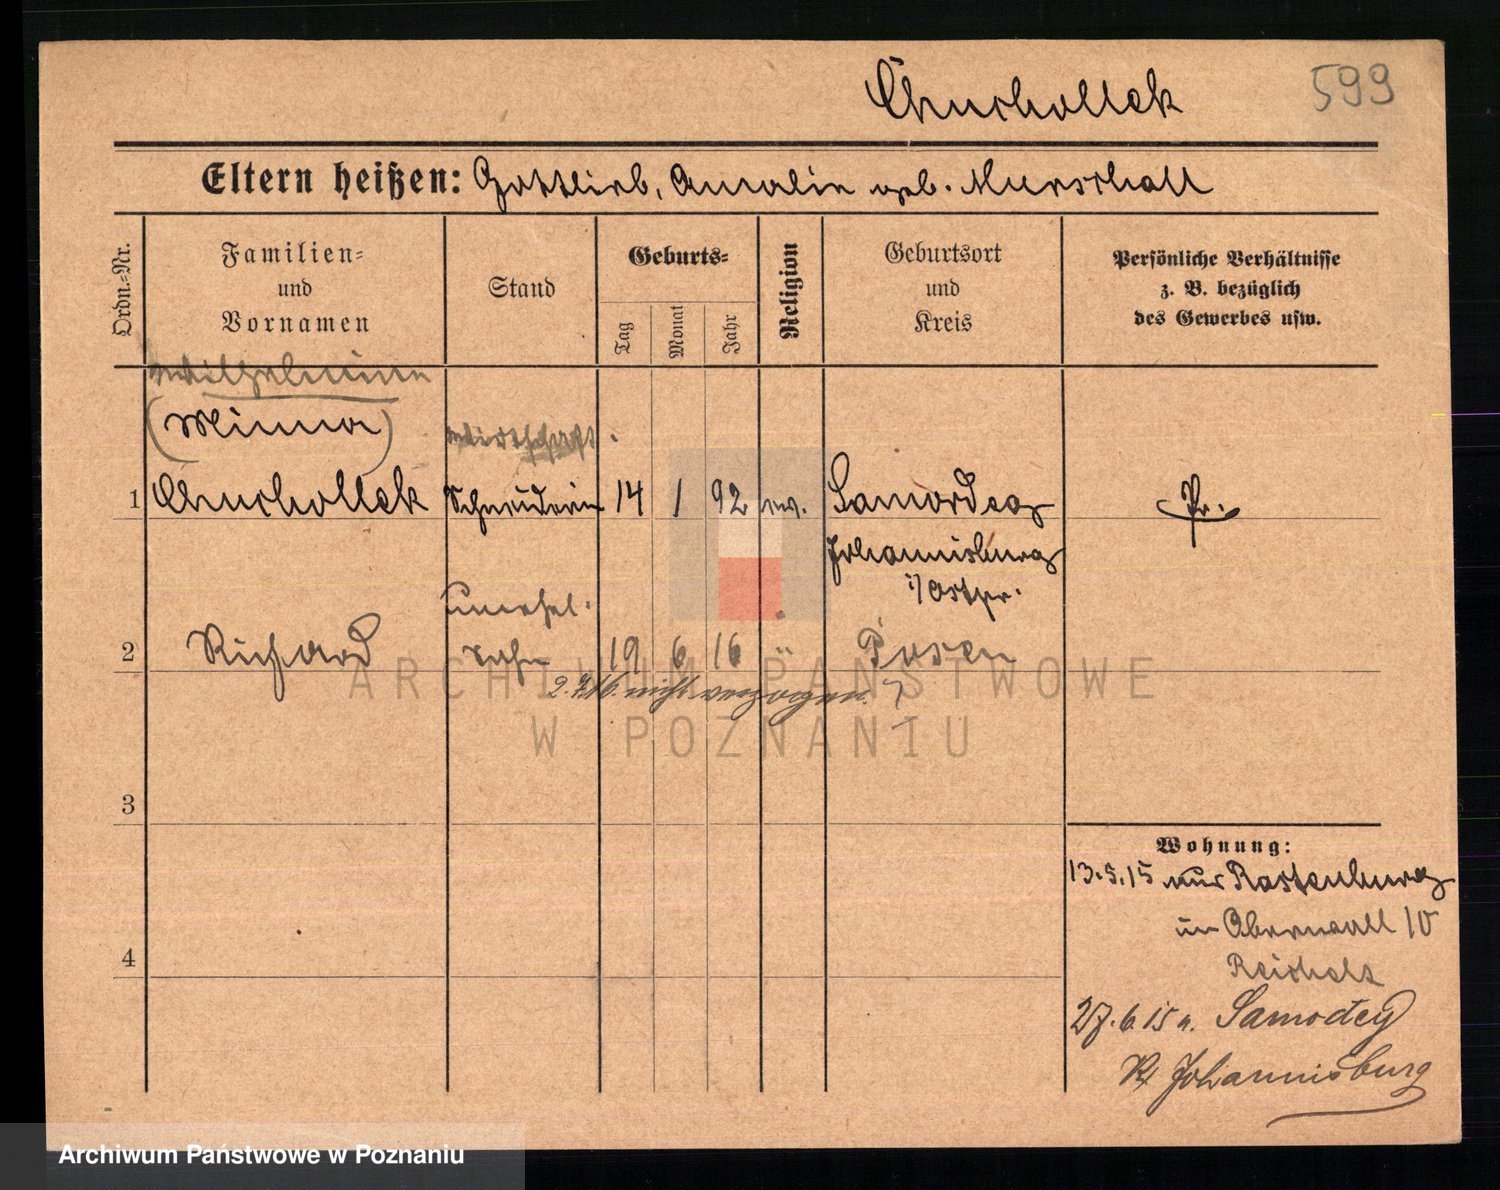 Chucholleck
599
Eltern heißen: Gottlieb, Amalie geb. Marschall
Ordn.-Nr.
Familien-
und
Vornamen
Stand
Geburts-
Tag
Monat
Jahr
Religion
Geburtsort
und
Kreis
Persönliche Verhältnisse
z. B. bezüglich
des Gewerbes usw.
Wilhelmine
(Minna)
Wirtschaft.
1 Chuchollek Schneiderin 14 1 92 ev. Pr.
Johannisburg
i/ Ostpr.
unehel.
2 Richard Sohn 19 6 16 " Posen
2.7.16. nicht verzogen.
3
4
Wohnung:
13.5.15 aus Rastenburg
Oberwall 10
27.6.15 n. Samordey
Kr Johannisburg
ARCHIWUM PAŃSTWOWE
W POZNANIU
Archiwum Państwowe w Poznaniu